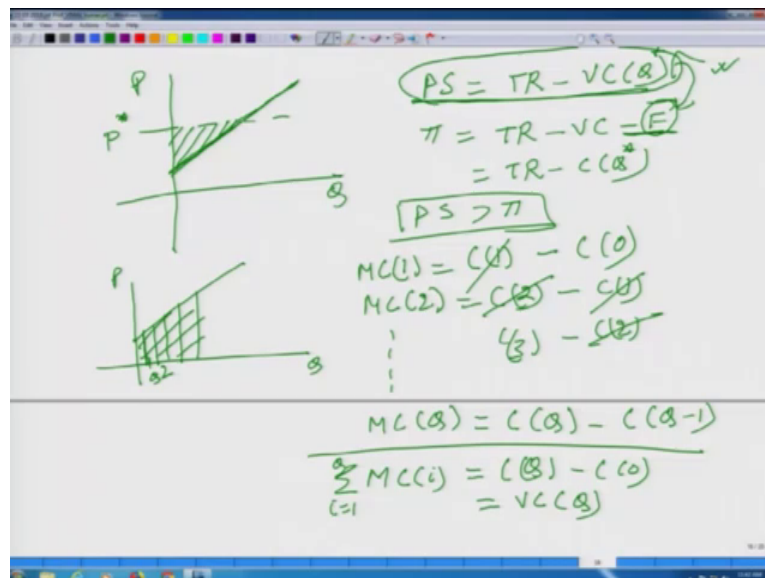 P
P*
Q
PS = TR - VC(Q*)
π = TR - VC - F
= TR - C(Q*)
PS > π
MC(1) = C(1) - C(0)
MC(2) = C(2) - C(1)
(3) - C(2)
P
Q
MC(Q) = C(Q) - C(Q-1)
Q
∑ MC(i) = C(Q) - C(0)
i=1
= VC(Q)